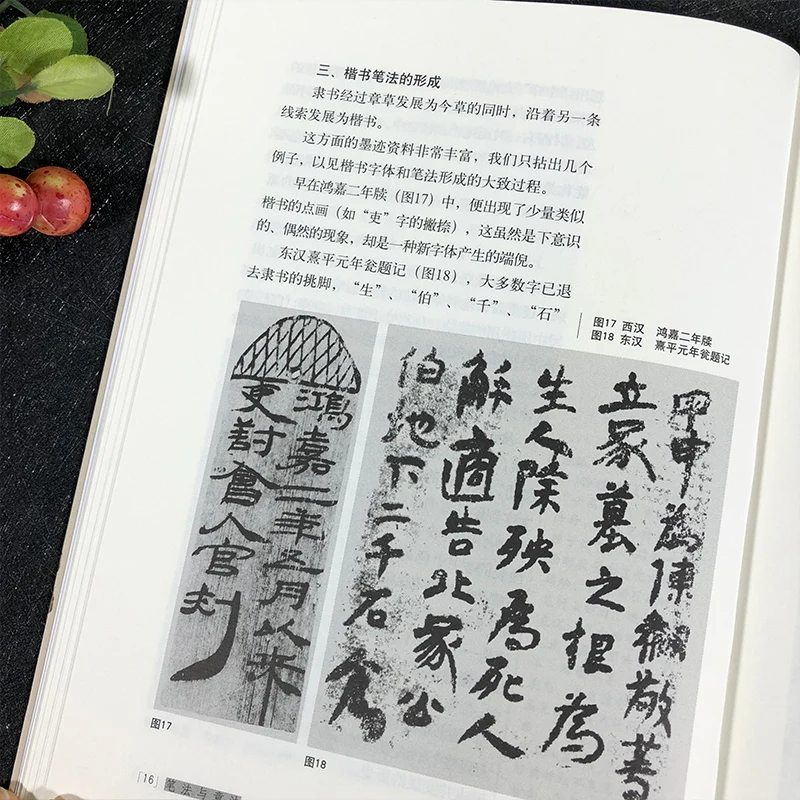 三、楷书笔法的形成
隶书经过章草发展为今草的同时，沿着另一条
线索发展为楷书。
这方面的墨迹资料非常丰富，我们只拈出几个
例子，以见楷书字体和笔法形成的大致过程。
早在鸿嘉二年牍（图17）中，便出现了少量类似
楷书的点画（如“吏”字的撇捺），这虽然是下意识
的、偶然的现象，却是一种新字体产生的端倪。
东汉熹平元年瓮题记（图18），大多数字已退
去隶书的挑脚，“生”、“伯”、“千”、“石”
图17 西汉 鸿嘉二年牍
图18 东汉 熹平元年瓮题记
鴻嘉二年五月以來
吏對會人官刺
甲申為陳叔敬等
立冢墓之根為
生人除殃為死人
解適告北冢公
伯地下二千石倉
图17
图18
[16] 笔法与章法